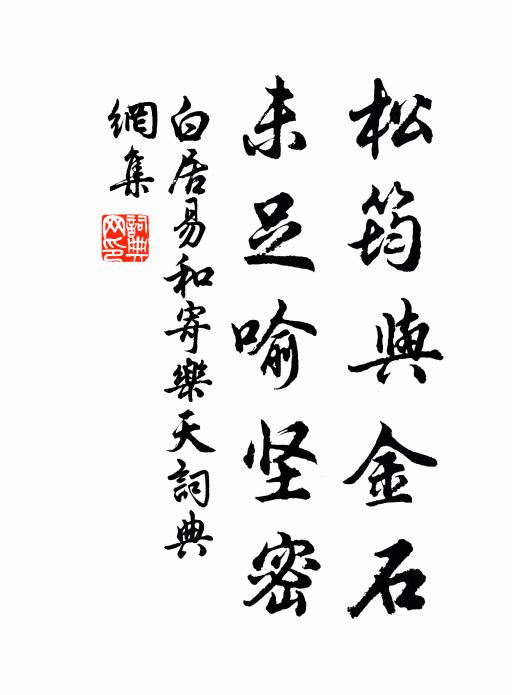 松筠與金石
未足喻坚密
白居易和寄樂天詞典
網集
詞典
网印